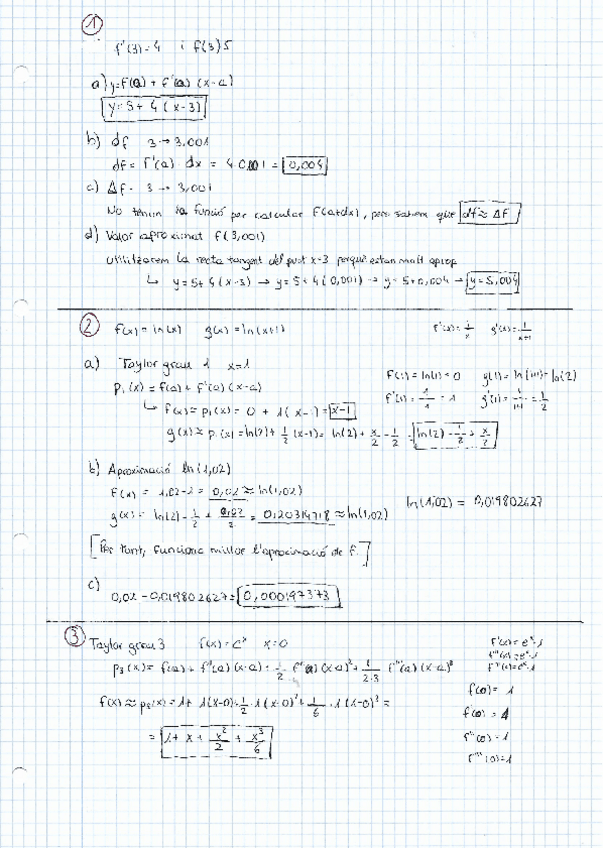 1
f'(3)=4 i f(3)5
a) y=f(a) + f'(a) (x-a)
y=5+4(x-3)
b) df 3→3.001
df= f'(a) dx = 4·0,001 = 0,004
c) Δf- 3 → 3,001
No tenim la funció per calcular F(a+dx), però sabem que df≈Δf
d) Valor aproximat f(3,001)
utilitzarem la recta tangent del punt x=3 perquè estan molt aprop
↳ y=5+4(x-3) → y=5+4(0,001) → y=5+0,004 → y=5,004
2 f(x)=ln(x) g(x)=ln(x+1) f'(x)=1/x g'(x)=1/x+1
a) Taylor grau 1 x=1
F(1)=ln(1)=0 g(1)=ln(1+1)=ln(2)
P₁(x)=f(a)+f'(a)(x-a)
f'(1)=1/1=1 g'(1)=1/1+1=1/2
↳ f(x)≈p₁(x)= 0 + 1(x-1)=x-1
g(x)≈p₁(x)=ln(2)+1/2(x-1)=ln(2)+x/2-1/2=ln(2)-1/2+x/2
b) Aproximació ln(1,02)
f(x)= 1,02-1=0,02≈ln(1,02)
ln(1,02) = 0,019802627
g(x)= ln(2)-1/2+0,02/2=0,20314718≈ln(1,02)
[Per tant, funciona millor l'aproximació de f.]
c)
0,02-0,019802627=0,000197373
3 Taylor grau 3 f(x)=eˣ x=0
f'(x)=eˣ·1
f''(x)=eˣ·1
f'''(x)=eˣ·1
p₃(x)= f(a)+f'(a)(x-a)+1/2 f''(a)(x-a)²+1/2·3 f'''(a)(x-a)³
f(0)= 1
f(x)≈p₃(x)=1+1(x-0)+1/2·1(x-0)²+1/6·1(x-0)³=
f'(0) = 1
= 1+x+x²/2+x³/6
f''(0)=1
f'''(0)=1